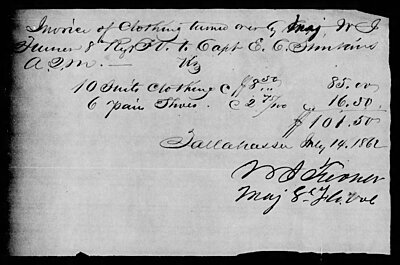 Invoice of Clothing turned over by Maj. W J
Turner 8" Regt Fl. to Capt E. C. Simkins
A. Q. M. —
10 Suits Clothing @ $8.50 85.00
6 pair Shoes. @ 2 75/100 16.50
$101.50
Tallahassee July 14. 1862
W J Turner
Maj 8" Fl. Vol